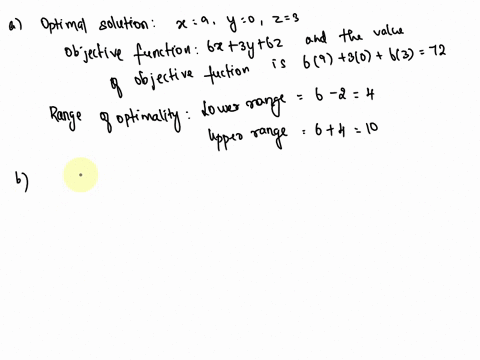 a) Optimal solution: x=9, y=0, z=3
Objective function: 6x+3y+6z and the value
of objective fuction is 6(9)+3(0)+6(3)=72
Range of optimality: Lower range = 6-2=4
Upper range = 6+4=10
b)